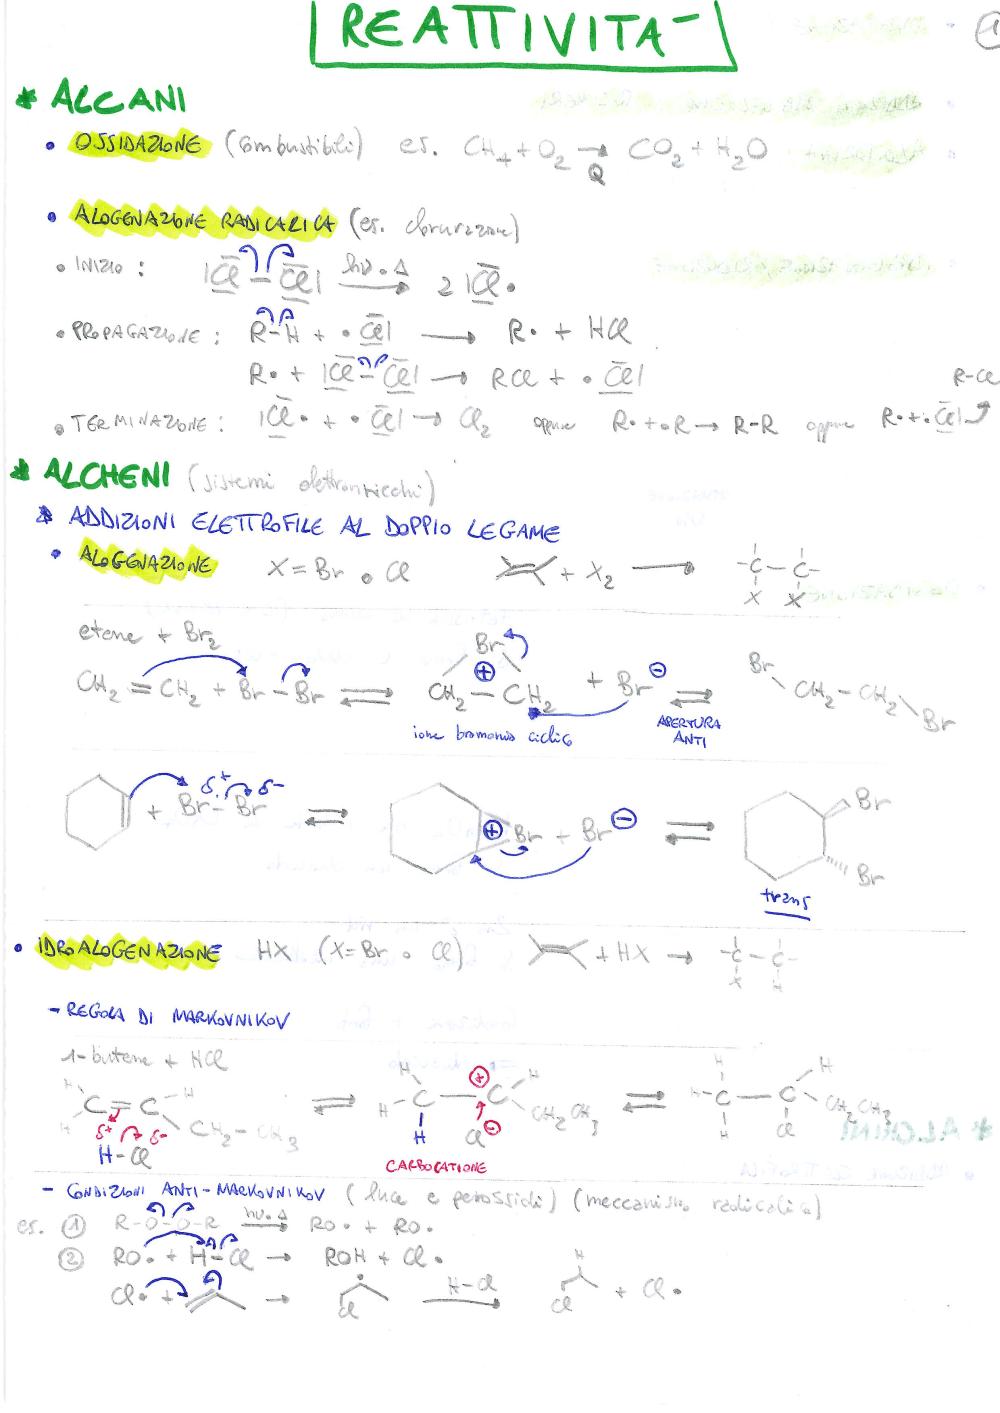 REATTIVITA'
1
* ALCANI
• OSSIDAZIONE (combustibili) es. CH4 + O2 →Q CO2 + H2O
• ALOGENAZIONE RADICARICA (es. clorurazione)
• INIZIO: |Cl — Cl| hν o Δ → 2 |Cl•
• PROPAGAZIONE: R-H + •Cl| → R• + HCl
R• + |Cl-Cl| → RCl + •Cl|
R-Cl
• TERMINAZIONE: |Cl• + •Cl| → Cl2 oppure R• + •R → R-R oppure R• + •Cl|
* ALCHENI (sistemi elettronricchi)
* ADDIZIONI ELETTROFILE AL DOPPIO LEGAME
• ALOGENAZIONE X = Br o Cl + X2 → -C-C- X X
etene + Br2
CH2 = CH2 + Br - Br ⇌ Br ⊕ CH2 - CH2 + Br ⊖ ⇌ Br CH2 - CH2 Br
ione bromonio ciclico APERTURA ANTI
+ Br - Br δ+ δ- ⇌ ⊕ Br + Br ⊖ ⇌ Br Br
trans
• IDROALOGENAZIONE HX (X = Br o Cl) + HX → -C-C- X H
- REGOLA DI MARKOVNIKOV
1-butene + HCl
H H C = C H CH2 - CH3 ⇌ H H - C - C ⊕ H CH2CH3 ⇌ H H - C - C H CH2CH3
δ+ δ- H - Cl H Cl ⊖ H Cl
CARBOCATIONE
- CONDIZIONI ANTI-MARKOVNIKOV (luce e perossidi) (meccanismo radicalico)
es. ① R-O-O-R hν o Δ → RO• + RO•
② RO• + H-Cl → ROH + Cl•
Cl• + → Cl H-Cl → H Cl + Cl•